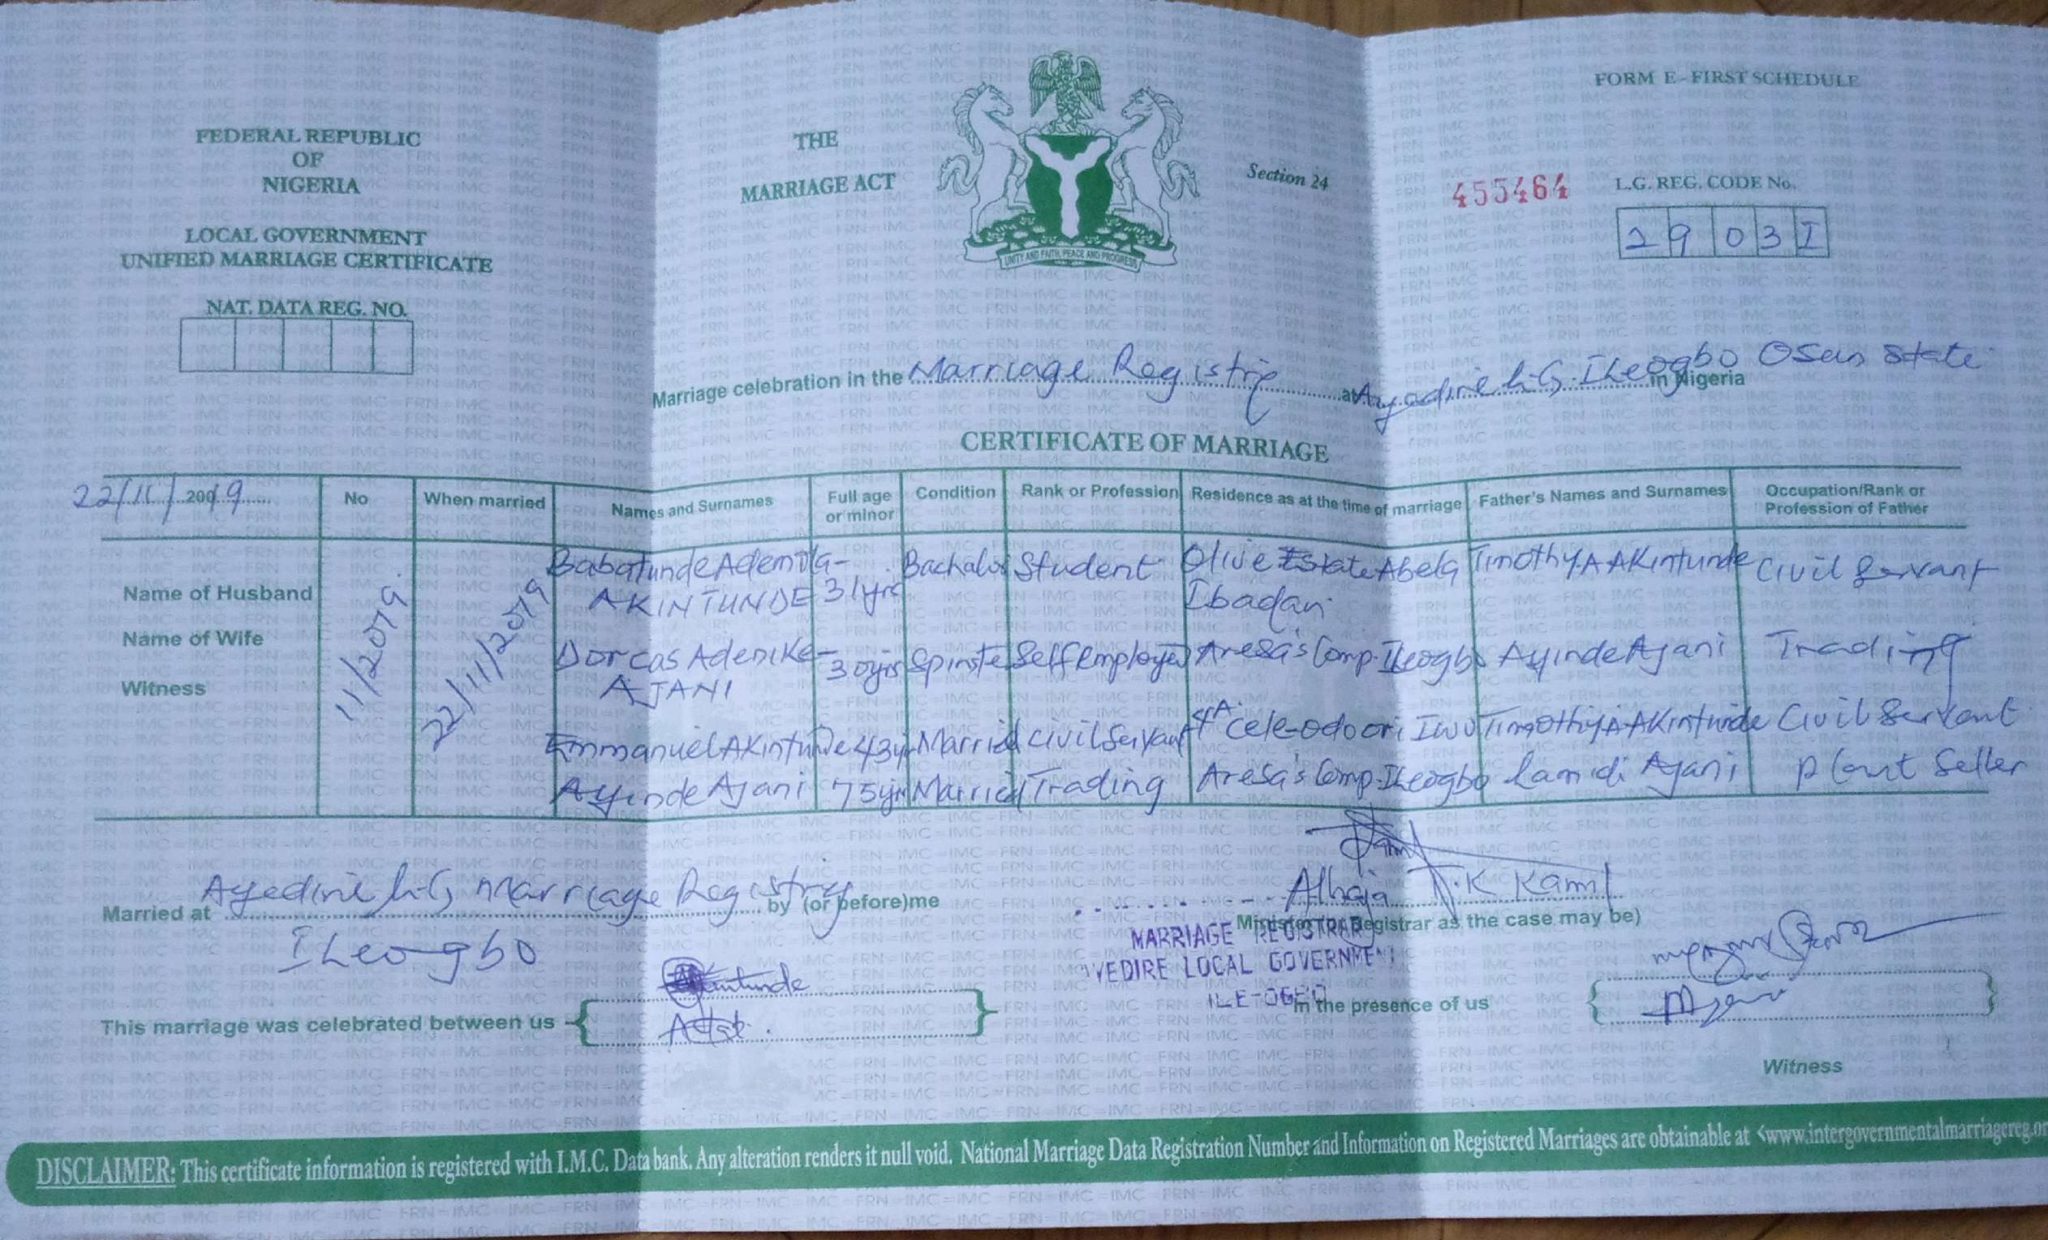 FORM E - FIRST SCHEDULE
FEDERAL REPUBLIC
OF
NIGERIA
LOCAL GOVERNMENT
UNIFIED MARRIAGE CERTIFICATE
NAT. DATA REG. NO.
THE
MARRIAGE ACT
UNITY AND FAITH, PEACE AND PROGRESS
Section 24
455464
L.G. REG. CODE No.
29031
Marriage celebration in the Marriage Registry at Ayedire L.G. ILeogbo Osun State in Nigeria
CERTIFICATE OF MARRIAGE
22/11/2019 No When married Names and Surnames Full age or minor Condition Rank or Profession Residence as at the time of marriage Father's Names and Surnames Occupation/Rank or Profession of Father
Name of Husband
Name of Wife
Witness
11/2019
22/11/2019
Babatunde Ademola- 31yrs Bachelor Student Olive Estate Abela Timothy A AKintunde Civil Servant
AKINTUNDE Ibadan
Dorcas Adenike- 30yrs Spinster Self Employed Aresa's Comp. ILeogbo Ayinde Ajani Trading
AJANI
Emmanuel AKintunde 43yr Married Civil Servant 4A Cele-odoori Iwo Timothy A AKintunde Civil Servant
Ayinde Ajani 75yr Married Trading Aresa's Comp. ILeogbo Lamidi Ajani Plant Seller
Married at Ayedire L.G Marriage Registry by (or before)me
ILeogbo
Alhaja T.K Kamil
Minister or Registrar as the case may be)
MARRIAGE REGISTRAR
AYEDIRE LOCAL GOVERNMENT
ILE-OGBO
This marriage was celebrated between us
in the presence of us
Witness
DISCLAIMER: This certificate information is registered with I.M.C. Data bank. Any alteration renders it null void. National Marriage Data Registration Number and Information on Registered Marriages are obtainable at <www.intergovernmentalmarriagereg.or